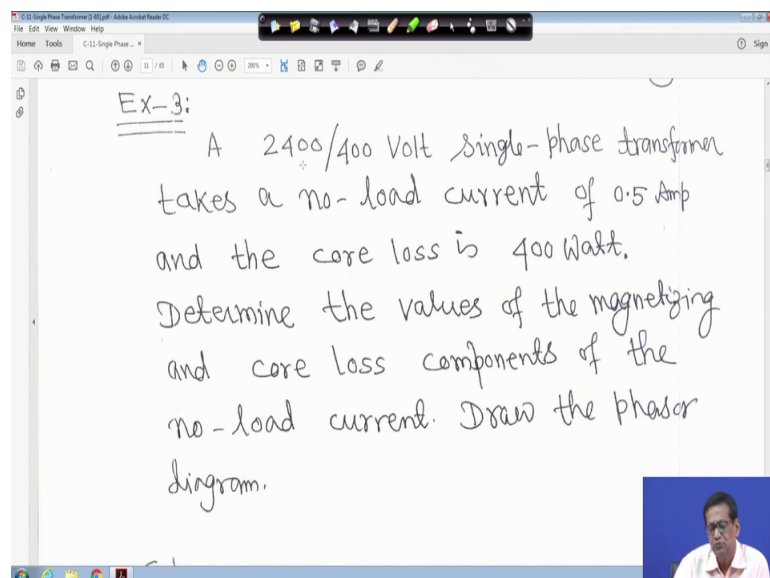 C-11-Single Phase Transformer [1-63].pdf - Adobe Acrobat Reader DC
File Edit View Window Help
Home Tools C-11-Single Phase ... × Sign
11 / 63 200%
Ex-3:
A 2400/400 Volt single-phase transformer
takes a no-load current of 0.5 Amp
and the core loss is 400 Watt.
Determine the values of the magnetizing
and core loss components of the
no-load current. Draw the phasor
diagram.